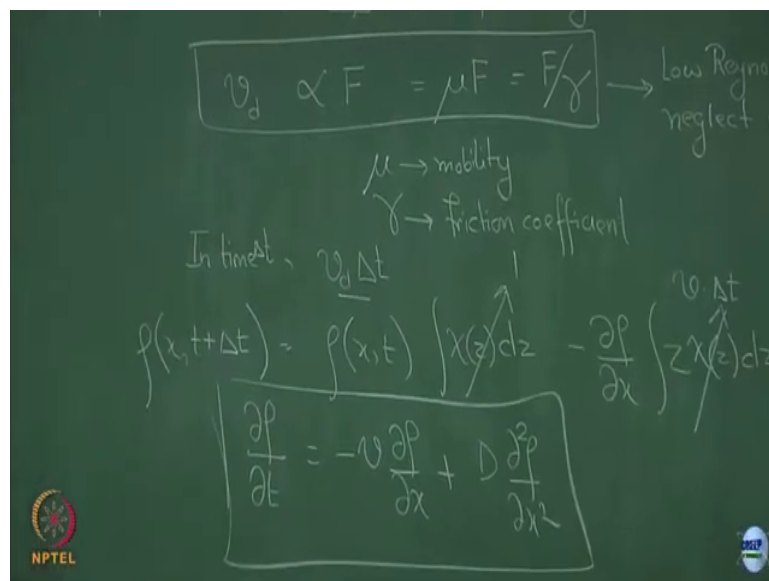 v_d ∝ F = μF = F/γ → Low Reyno
neglect
μ → mobility
γ → friction coefficient
In time Δt, v_d Δt
1
v·Δt
ρ(x, t+Δt) = ρ(x, t) ∫ χ(z) dz − ∂ρ/∂x ∫ z χ(z) dz
∂ρ/∂t = −v ∂ρ/∂x + D ∂²ρ/∂x²
NPTEL